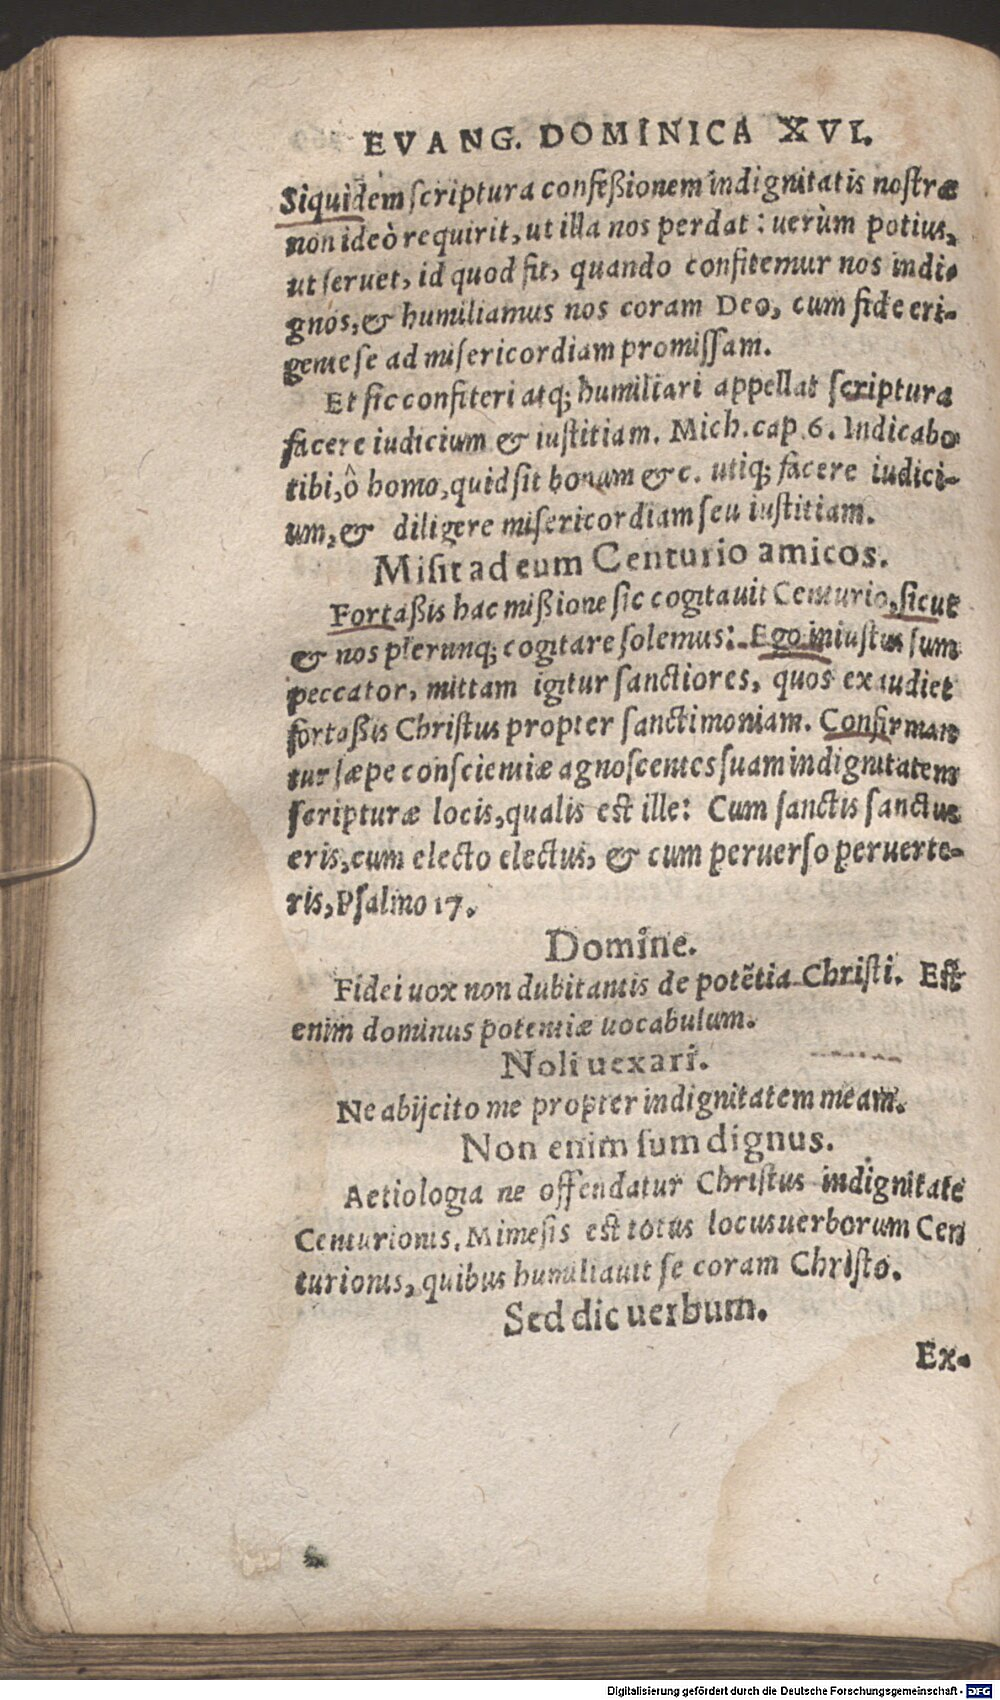 EVANG. DOMINICA XVI.
Siquidem scriptura confeßionem indignitatis nostræ
non ideò requirit, ut illa nos perdat: uerùm potius,
ut seruet, id quod fit, quando confitemur nos indi-
gnos, & humiliamus nos coram Deo, cum fide eri-
gente se ad misericordiam promissam.
Et sic confiteri atq; humiliari appellat scriptura
facere iudicium & iustitiam. Mich. cap. 6. Indicabo
tibi, ô homo, quid sit bonum &c. utiq; facere iudici-
um, & diligere misericordiam seu iustitiam.
Misit ad eum Centurio amicos.
Fortaßis hac mißione sic cogitauit Centurio, sicut
& nos plerunq; cogitare solemus: Ego iniustus sum
peccator, mittam igitur sanctiores, quos exaudiet
fortaßis Christus propter sanctimoniam. Confirman
tur sæpe conscientiæ agnoscentes suam indignitatem
scripturæ locis, qualis est ille: Cum sanctis sanctus
eris, cum electo electus, & cum peruerso peruerte-
ris, Psalmo 17.
Domine.
Fidei uox non dubitantis de potẽtia Christi. Est
enim dominus potentiæ uocabulum.
Noli uexari.
Ne abijcito me propter indignitatem meam.
Non enim sum dignus.
Aetiologia ne offendatur Christus indignitate
Centurionis. Mimesis est totus locus uerborum Cen
turionis, quibus humiliauit se coram Christo.
Sed dic uerbum.
Ex-
Digitalisierung gefördert durch die Deutsche Forschungsgemeinschaft - DFG